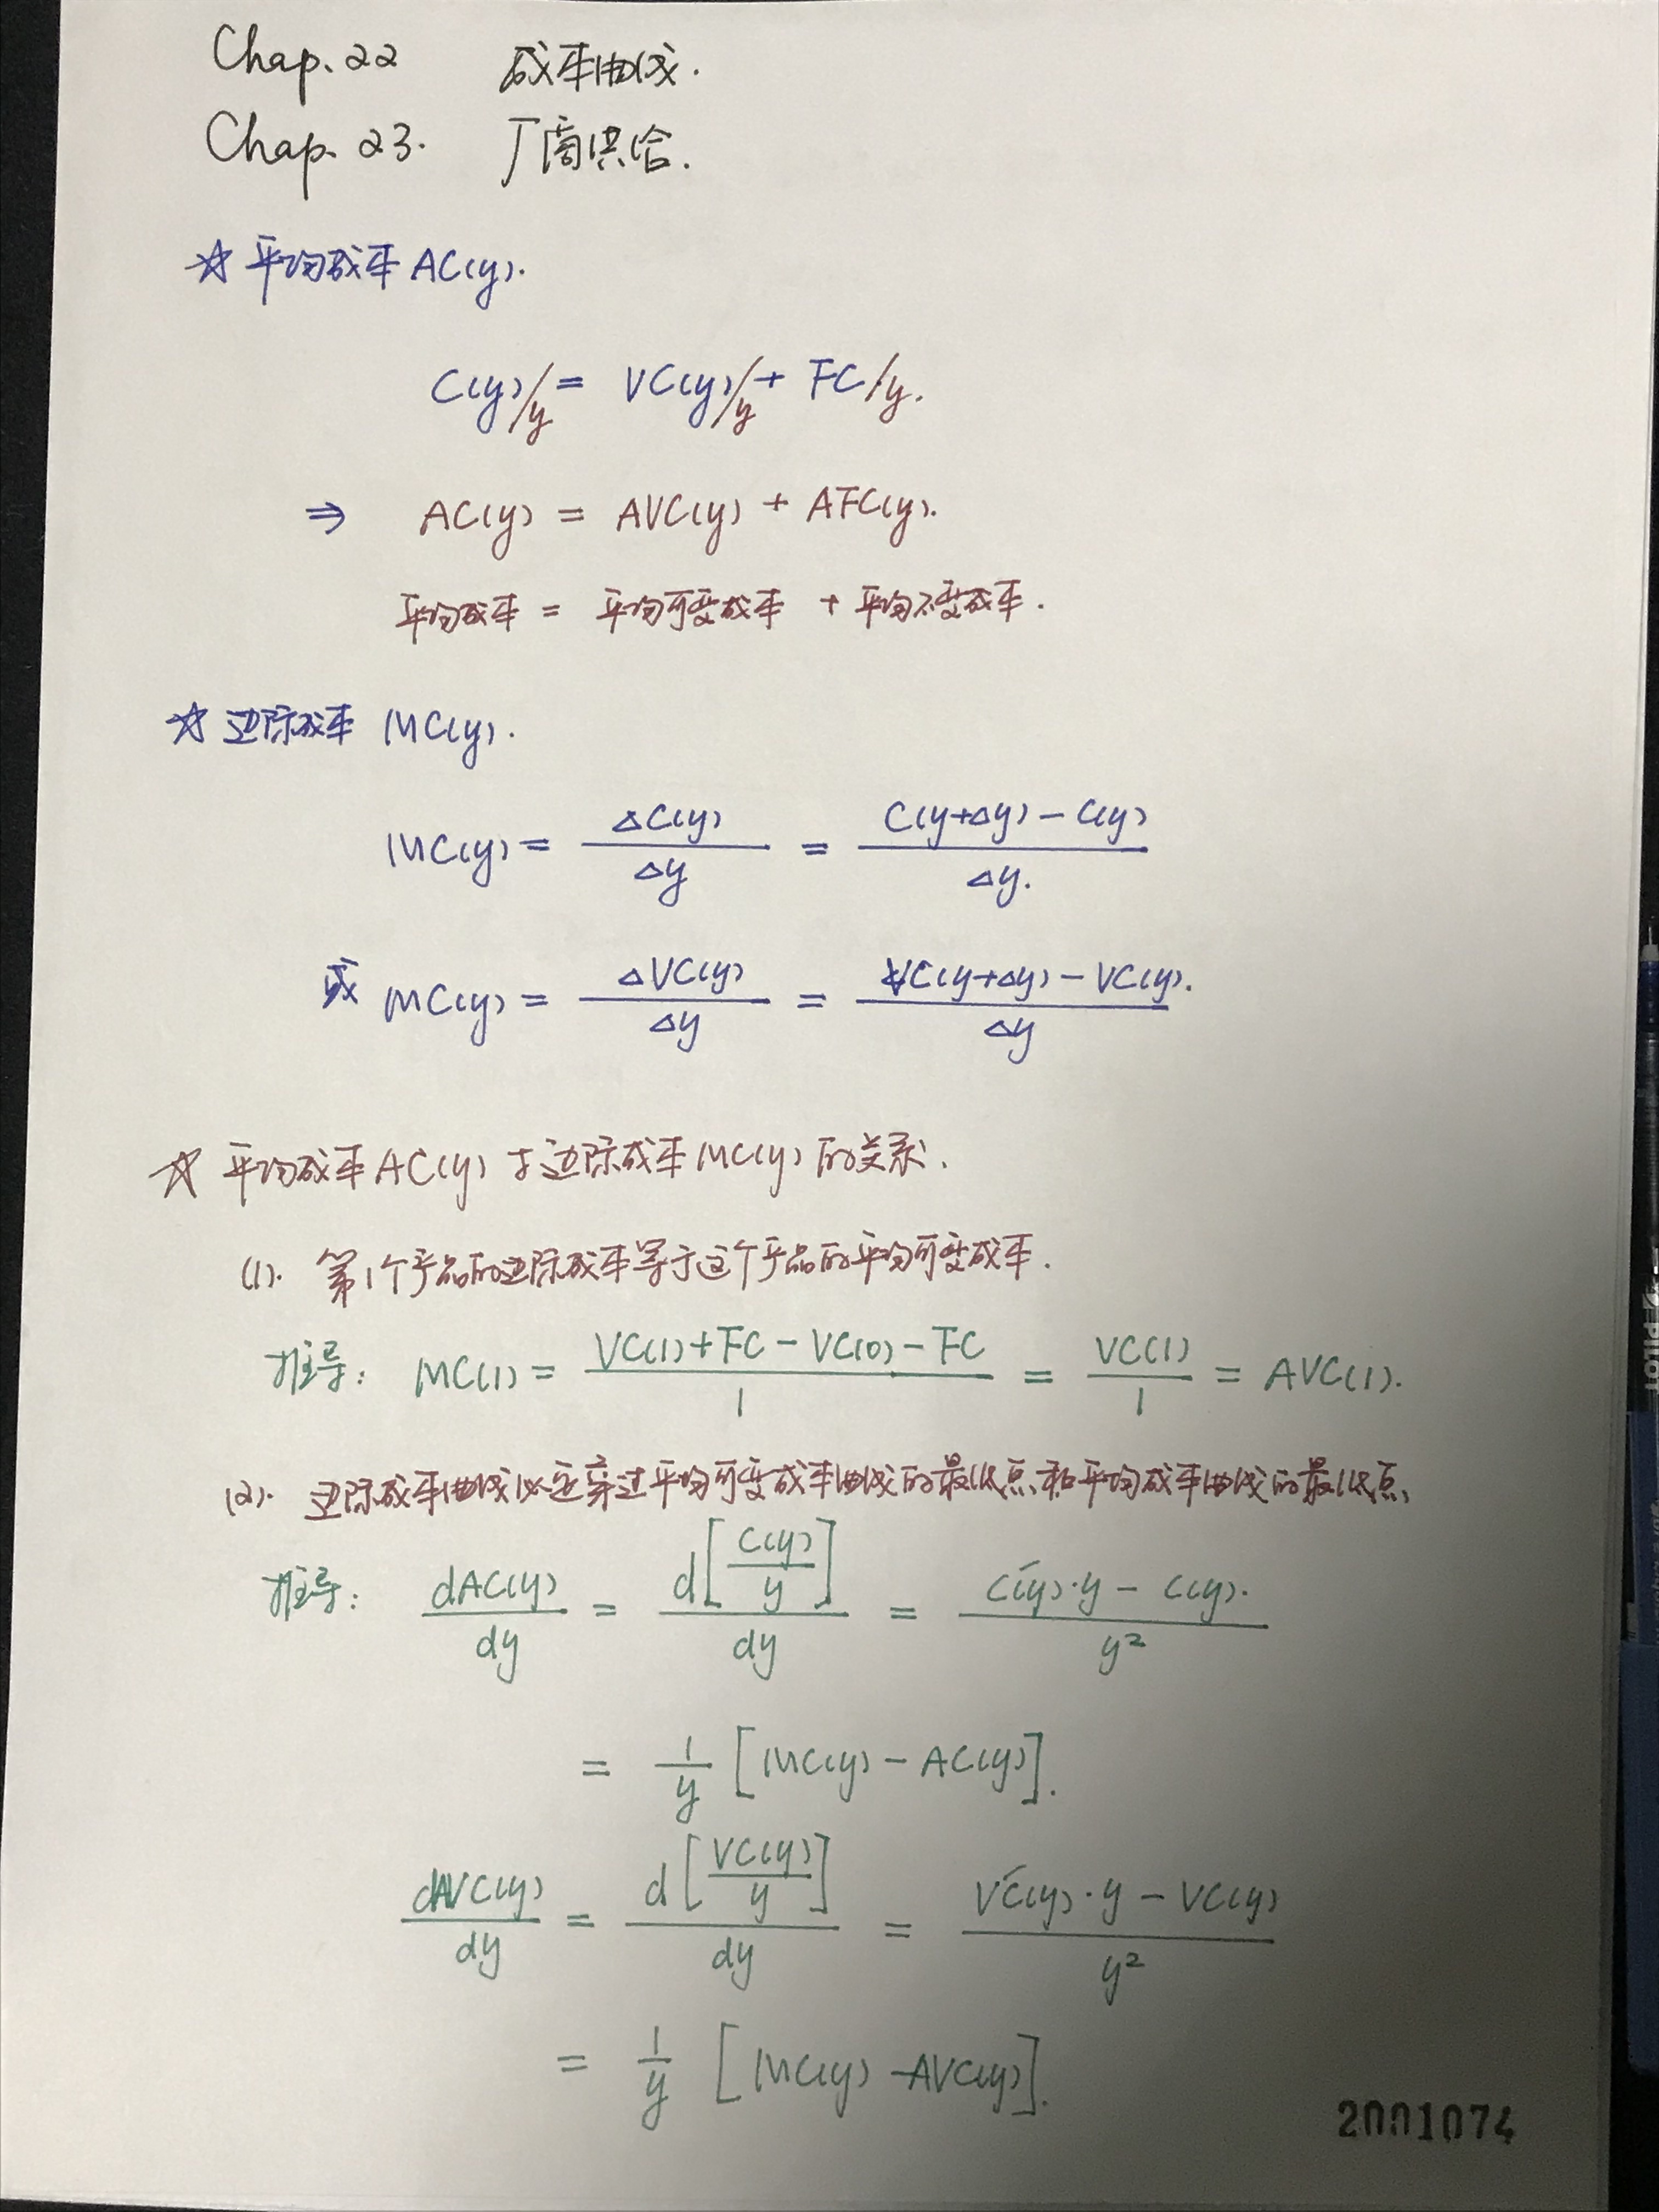 Chap.22 成本曲线.
Chap.23. 厂商供给.
☆ 平均成本 AC(y).
C(y)/y = VC(y)/y + FC/y.
⇒ AC(y) = AVC(y) + AFC(y).
平均成本 = 平均可变成本 + 平均不变成本.
☆ 边际成本 MC(y).
MC(y) = ΔC(y)/Δy = C(y+Δy) - C(y)/Δy.
或 MC(y) = ΔVC(y)/Δy = VC(y+Δy) - VC(y)./Δy
☆ 平均成本AC(y)与边际成本MC(y)的关系.
(1). 第1个产品的边际成本等于这个产品的平均可变成本.
推导: MC(1) = VC(1)+FC-VC(0)-FC/1 = VC(1)/1 = AVC(1).
(2). 边际成本曲线必定穿过平均可变成本曲线的最低点和平均成本曲线的最低点、
推导: dAC(y)/dy = d[C(y)/y]/dy = C'(y)·y - C(y)./y²
= 1/y [MC(y) - AC(y)].
dAVC(y)/dy = d[VC(y)/y]/dy = VC'(y)·y - VC(y)/y²
= 1/y [MC(y) - AVC(y)].
2001074
PILOT